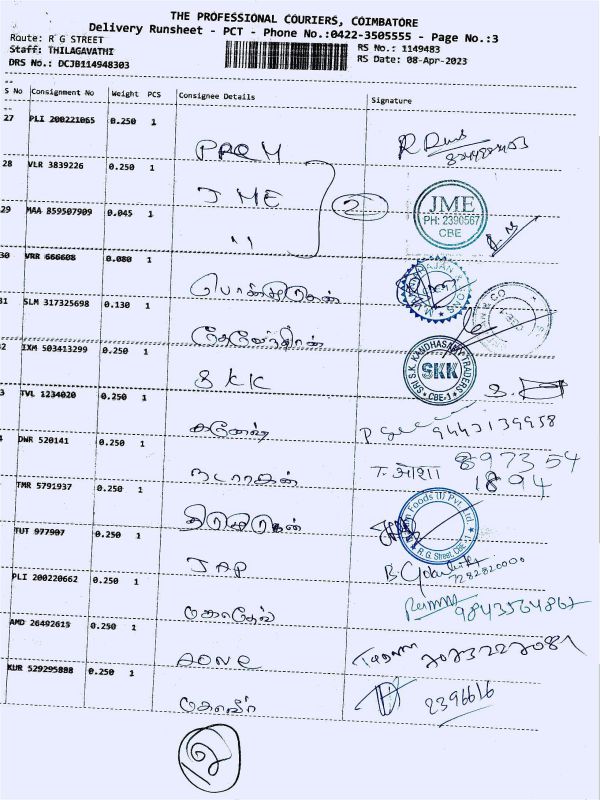 THE PROFESSIONAL COURIERS, COIMBATORE
Delivery Runsheet - PCT - Phone No.:0422-3505555 - Page No.:3
Route: R G STREET
RS No.: 1149483
Staff: THILAGAVATHI
RS Date: 08-Apr-2023
DRS No.: DCJB114948303
S No Consignment No Weight PCS Consignee Details Signature
27 PLI 200221065 0.250 1
PREM
28 VLR 3839226 0.250 1
JME
2
JME
PH: 2390567
CBE
29 MAA 859507909 0.045 1
"
30 VRR 666608 0.080 1
31 SLM 317325698 0.130 1
2 IXM 503413299 0.250 1
SKK
SRI S.K. KANDHASAMY TRADERS
SKK
CBE-1
3 TVL 1234020 0.250 1
கணேஷ்
9443139958
4 DWR 520141 0.250 1
நடராஜன்
89735 4
1894
TMR 5791937 0.250 1
Foods (I) Pvt. Ltd.
R. G. Street, CBE -1
TUT 977907 0.250 1
JAP
7282820000
PLI 200220662 0.250 1
மகாதேவ்
9843564862
AMD 26492615 0.250 1
AONE
KUR 529295888 0.250 1
மகாவீர்
2396616